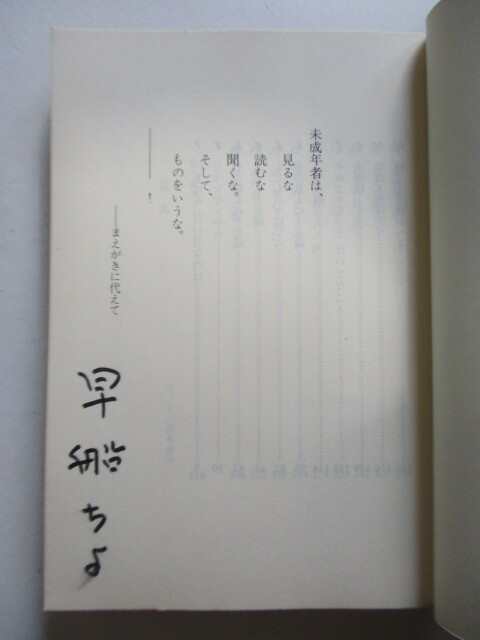 未成年者は、
見るな
読むな
聞くな。
そして、
ものをいうな。
――――！
――まえがきに代えて
早船ちよ